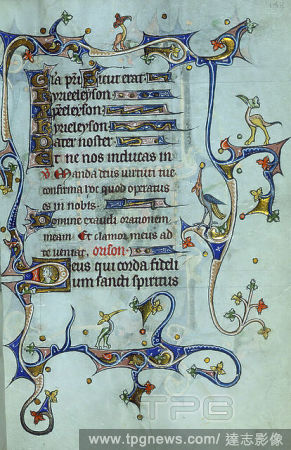 Gla pri Sicut erat
Kyrieleyson
Xpeleyson
Kyrieleyson
Pater noster
Et ne nos inducas in
V Manda deus virtuti tue
confirma hoc quod operatus
es in nobis
Domine exaudi orationem
meam Et clamor meus ad
te veniat orison
Deus qui corda fideli
um sancti spiritus
TPG
www.tpgnews.com / 達志影像